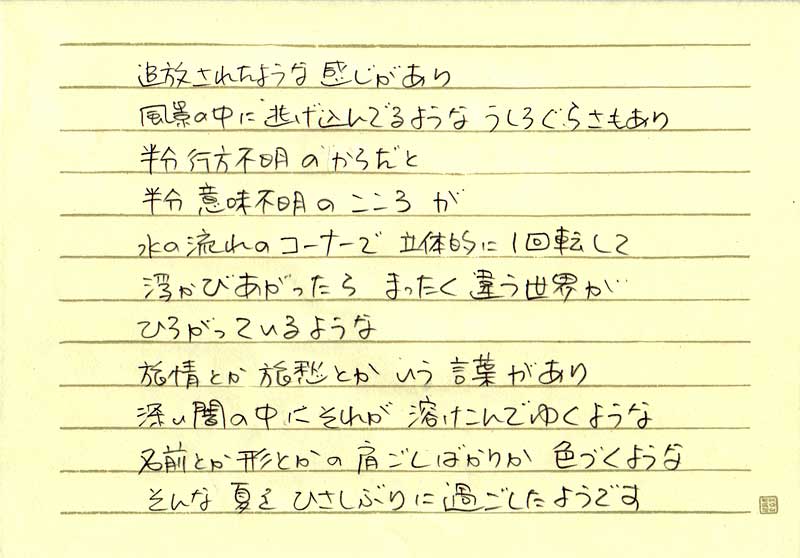 追放されたような 感じがあり
風景の中に 逃げ込んでるような うしろぐらさもあり
半分 行方不明の からだと
半分 意味不明の こころ が
水の流れのコーナーで 立体的に 1回転して
浮かびあがったら まったく 違う世界が
ひろがっているような
旅情とか 旅愁とか いう 言葉があり
深い闇の中にそれが 溶けこんでゆくような
名前とか形とかの 肩ごしばかりが 色づくような
そんな 夏を ひさしぶりに 過ごしたようです